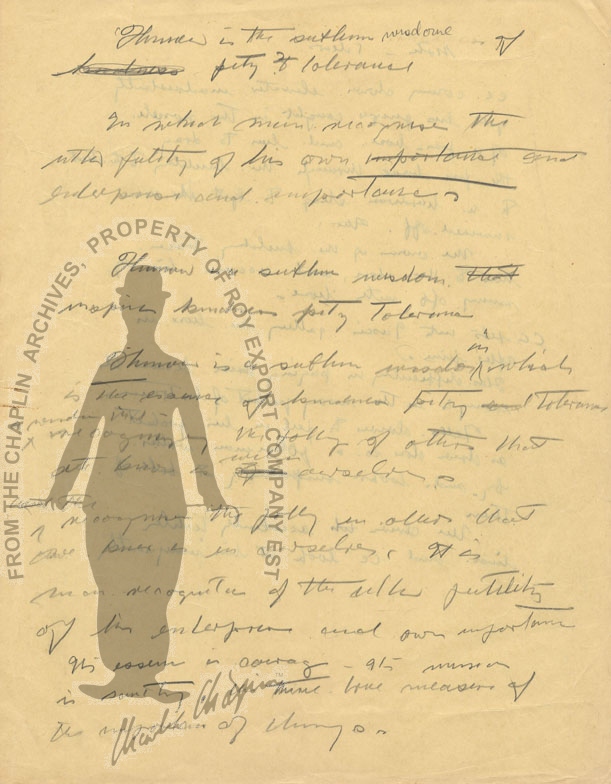 Humour is the suthum wisdome of
kindness pity & tolerance
In which man recognise the
utter futility of his own importance and
enterprises and importance.
Humour is a suthum wisdom that
inspires kindness pity Tolerance
Humour is a suthum wisdom in which
is the essence of kindness pity and Tolerance
recognising the folly of others that
ourselves.
recognise the folly in others that
in ourselves. It is
man recognition of the utter futility
of his enterprises and own importance
Its essence is – its mission
is true measure of
the of things.
FROM THE CHAPLIN ARCHIVES, PROPERTY OF ROY EXPORT COMPANY EST
Charlie Chaplin